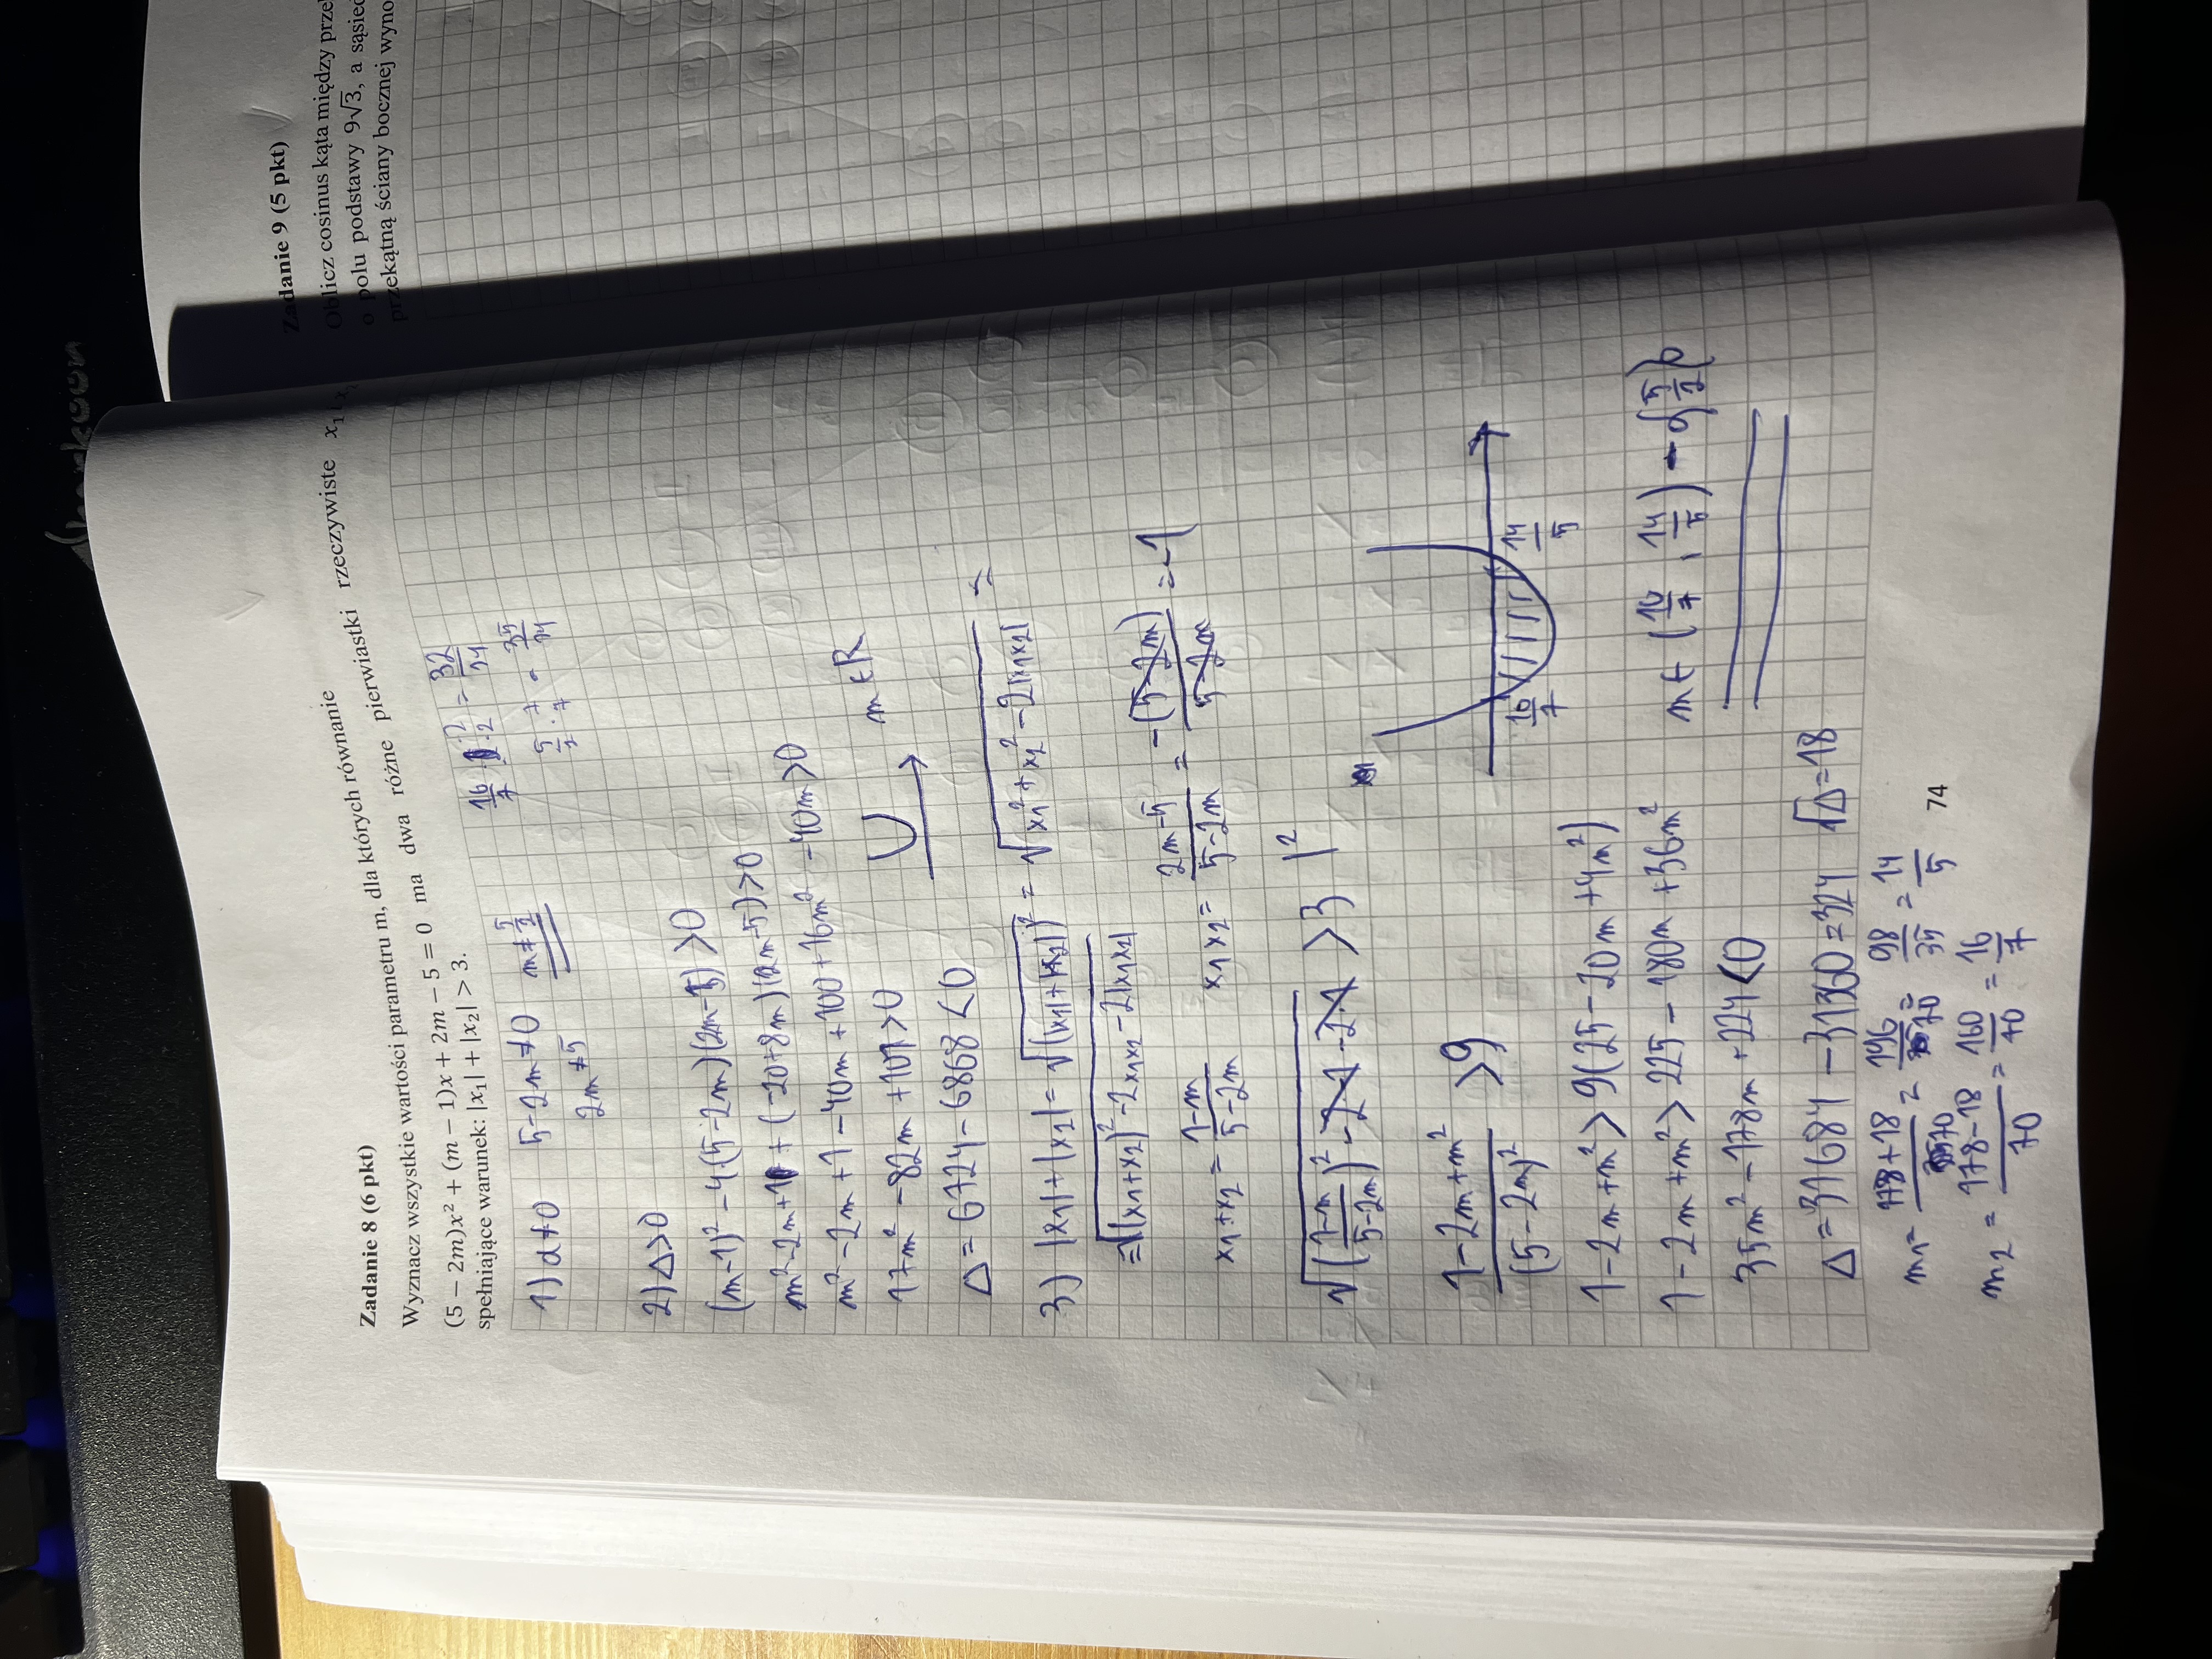 Zadanie 8 (6 pkt)
Wyznacz wszystkie wartości parametru m, dla których równanie
(5 − 2m)x² + (m − 1)x + 2m − 5 = 0 ma dwa różne pierwiastki rzeczywiste x₁ i
spełniające warunek: |x₁| + |x₂| > 3.
1) a≠0 5-2m≠0 m≠5/2
2m≠5
16/7 · 2/2 = 32/14
5/2 · 7/7 = 35/14
2) Δ>0
(m-1)² -4(5-2m)(2m-5) >0
m²-2m+1 + (-20+8m)(2m-5)>0
m²-2m+1 -40m+100+16m² -40m>0
17m² -82m+101>0 m∈R
Δ=6724-6868 <0
3) |x₁|+|x₂|= √(|x₁|+|x₂|)² = √x₁²+x₂²-2|x₁x₂| =
=√(x₁+x₂)²-2x₁x₂-2|x₁x₂|
x₁+x₂ = 1-m/5-2m x₁x₂= 2m-5/5-2m = -(5-2m)/5-2m =-1
√(1-m/5-2m)²-2·1-2·1 >3 |²
1-2m+m²/(5-2m)² >9
1-2m+m²>9(25-20m+4m²)
1-2m+m²>225-180m+36m²
35m²-178m+224<0
16/7 14/5
m∈(16/7, 14/5) - {5/2}
Δ=31684-31360=324 √Δ=18
m₁= 178+18/70 = 196/70 = 98/35 = 14/5
m₂= 178-18/70 = 160/70 = 16/7
74
Zadanie 9 (5 pkt)
Oblicz cosinus kąta między prze
o polu podstawy 9√3, a sąsied
przekątną ściany bocznej wyno